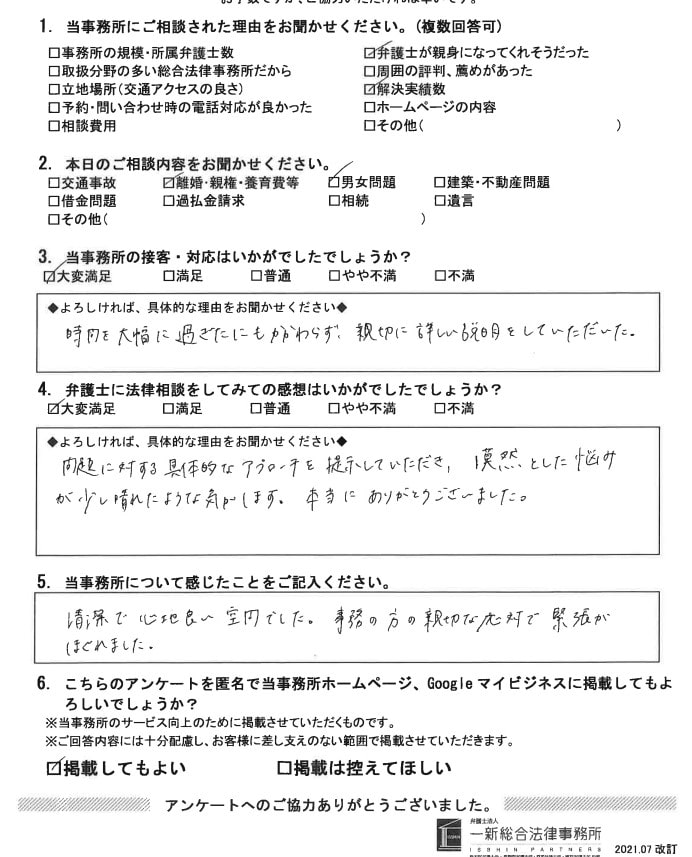 1. 当事務所にご相談された理由をお聞かせください。(複数回答可)
□事務所の規模・所属弁護士数 ☑弁護士が親身になってくれそうだった
□取扱分野の多い総合法律事務所だから □周囲の評判、薦めがあった
□立地場所(交通アクセスの良さ) ☑解決実績数
□予約・問い合わせ時の電話対応が良かった □ホームページの内容
□相談費用 □その他( )
2. 本日のご相談内容をお聞かせください。
□交通事故 ☑離婚・親権・養育費等 ☑男女問題 □建築・不動産問題
□借金問題 □過払金請求 □相続 □遺言
□その他( )
3. 当事務所の接客・対応はいかがでしたでしょうか?
☑大変満足 □満足 □普通 □やや不満 □不満
◆よろしければ、具体的な理由をお聞かせください◆
時間を大幅に過ぎたにもかかわらず、親切に詳しい説明をしていただいた。
4. 弁護士に法律相談をしてみての感想はいかがでしたでしょうか?
☑大変満足 □満足 □普通 □やや不満 □不満
◆よろしければ、具体的な理由をお聞かせください◆
問題に対する具体的なアプローチを提示していただき、漠然とした悩み
が少し晴れたような気がします。本当にありがとうございました。
5. 当事務所について感じたことをご記入ください。
清潔で心地良い空間でした。事務の方の親切な応対で緊張が
ほぐれました。
6. こちらのアンケートを匿名で当事務所ホームページ、Googleマイビジネスに掲載してもよ
ろしいでしょうか?
※当事務所のサービス向上のために掲載させていただくものです。
※ご回答内容には十分配慮し、お客様に差し支えのない範囲で掲載させていただきます。
☑掲載してもよい □掲載は控えてほしい
アンケートへのご協力ありがとうございました。
弁護士法人
一新総合法律事務所
ISSHIN PARTNERS
2021.07 改訂